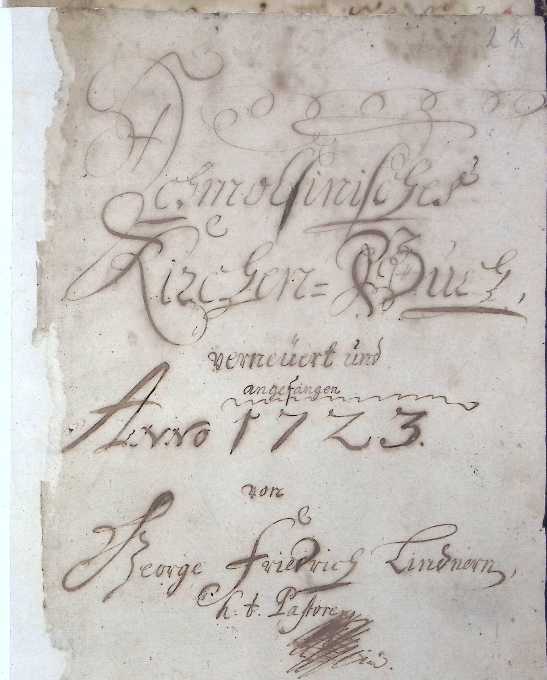 24
Schmolsinisches
Kirchen=Buch,
verneüert und
angefangen
Anno 1723.
von
George Friedrich Lindnern,
h. t. Pastore